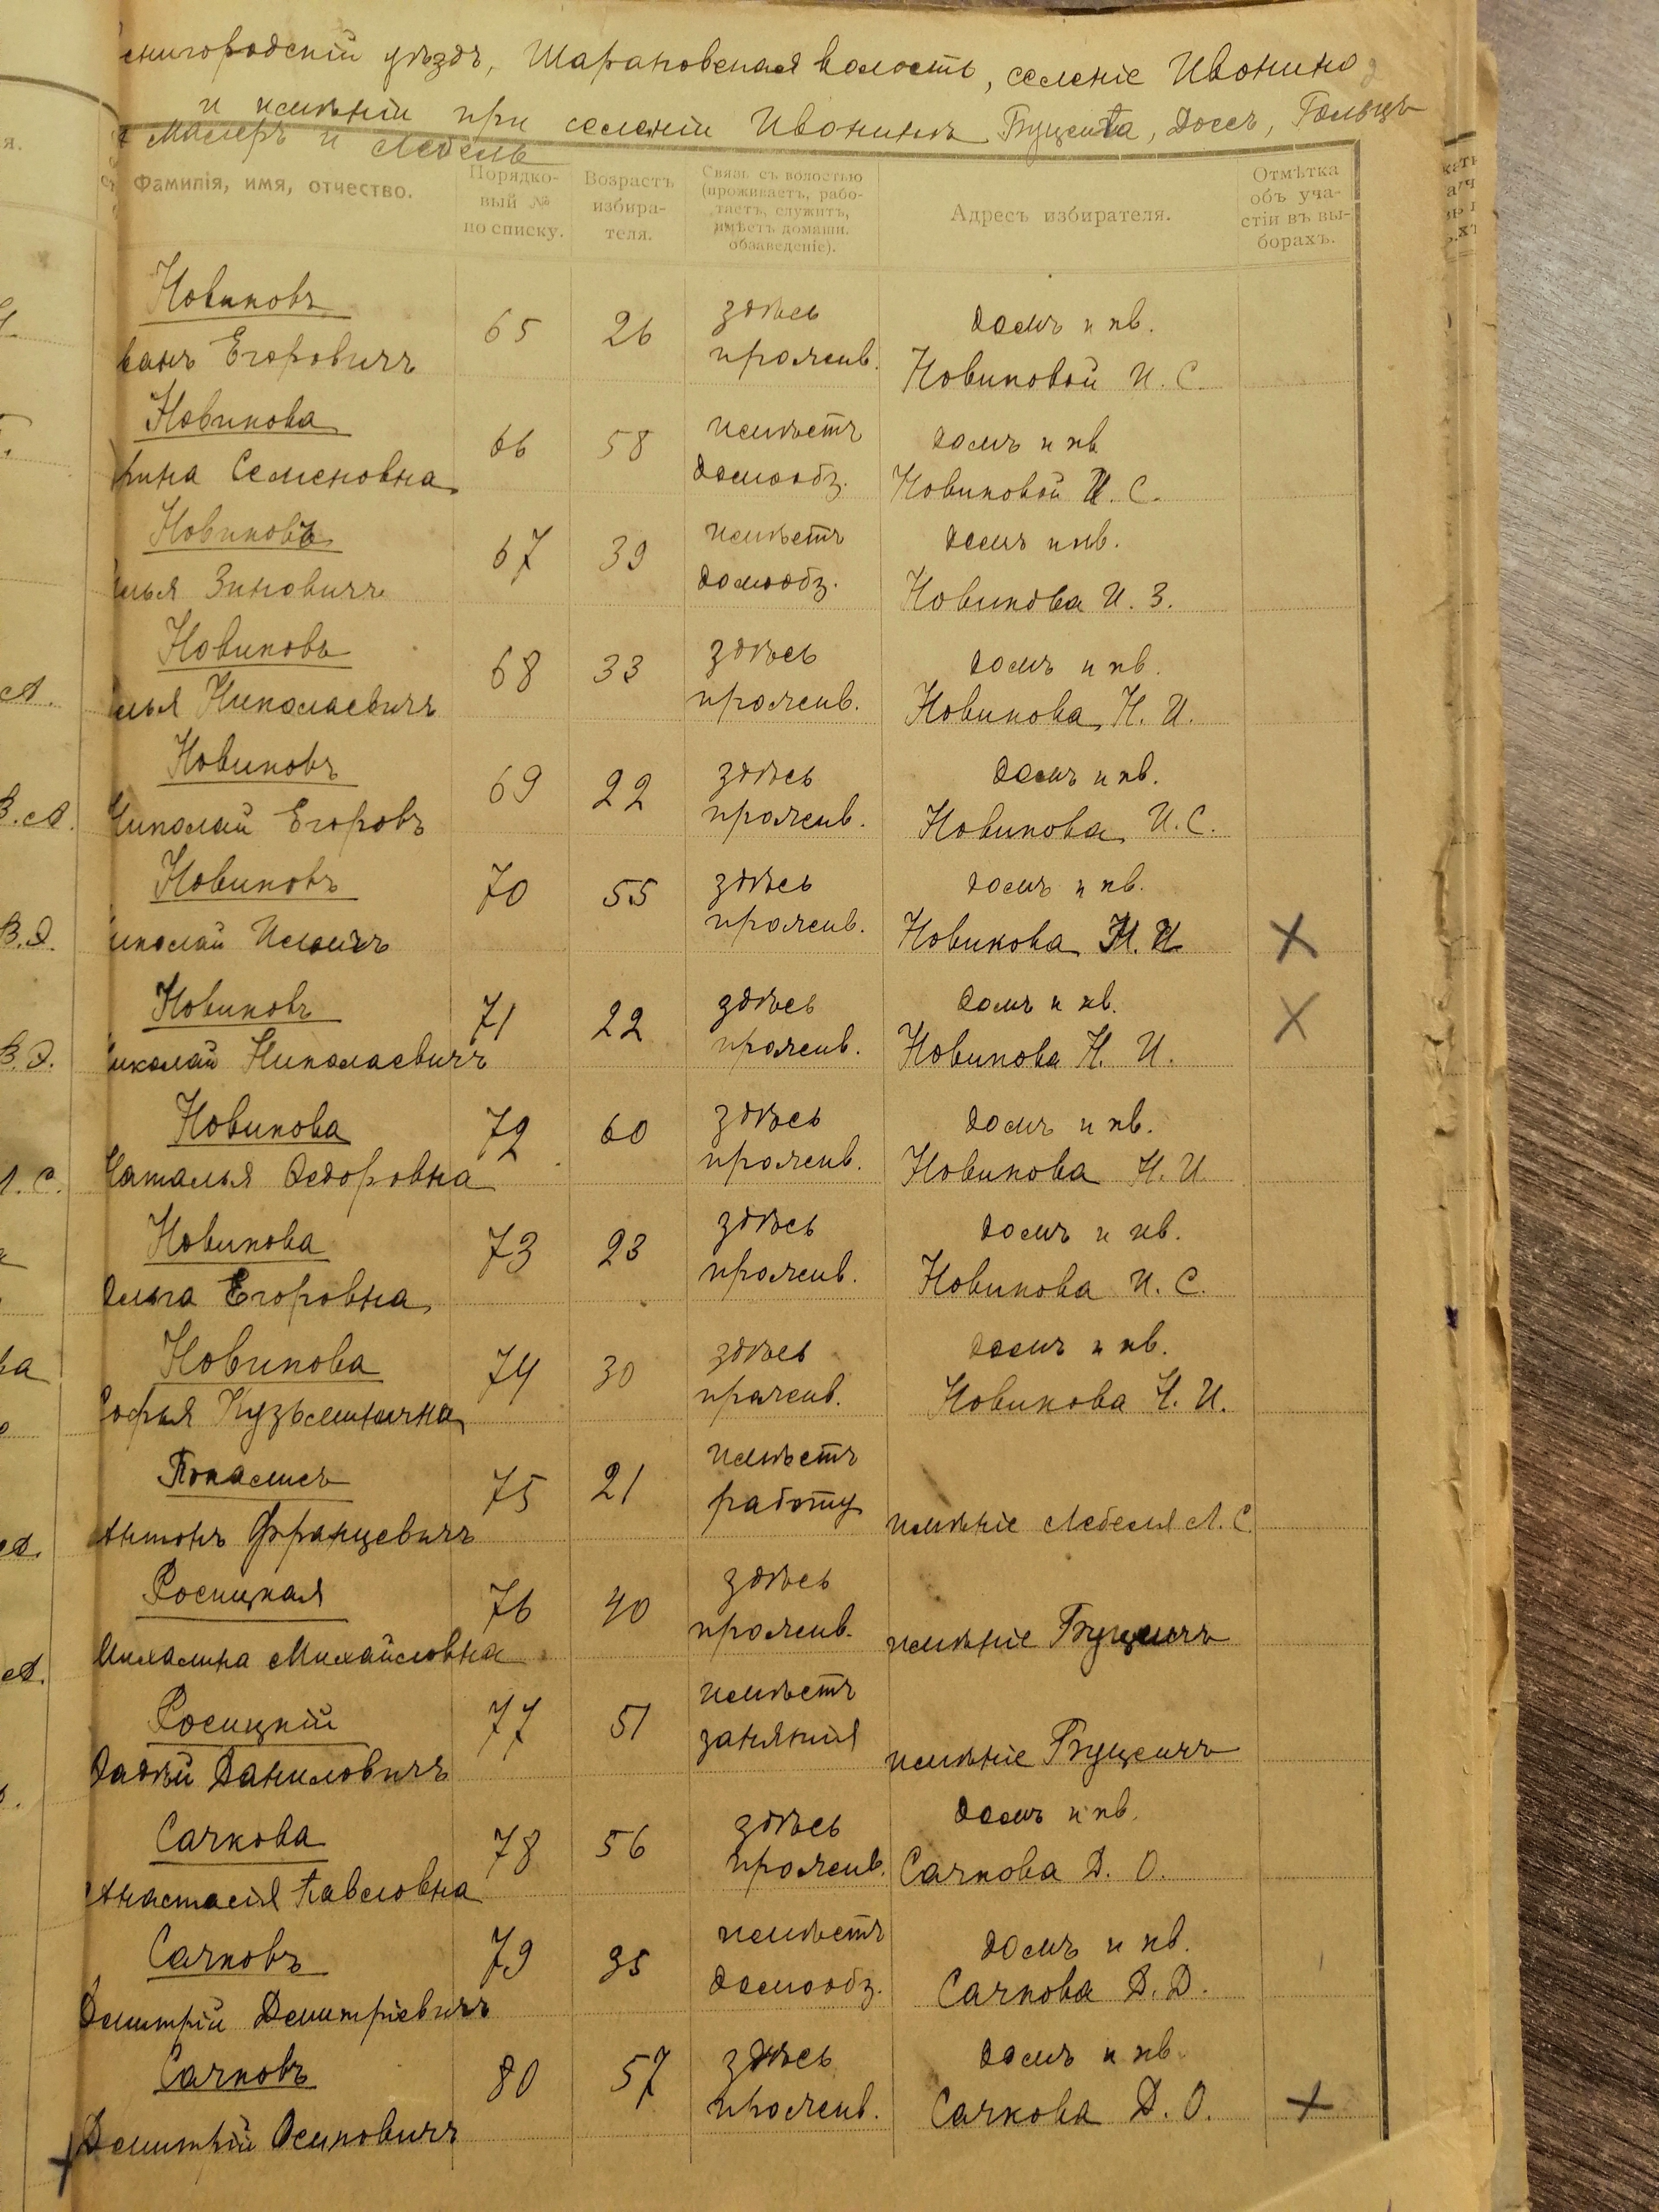 енигородскій уѣздъ, Шараповская волость, селеніе Ивонино
и имѣніи при селеніи Ивонинѣ Бущента, Доссъ, Гольцъ
Маперъ и Лебель
Фамилія, имя, отчество.
Порядко-
вый №
по списку.
Возрастъ
избира-
теля.
Связь съ волостью
(проживаетъ, рабо-
таетъ, служитъ,
имѣетъ домашн.
обзаведеніе).
Адресъ избирателя.
Отмѣтка
объ уча-
стіи въ вы-
борахъ.
Новиковъ
ванъ Егоровичъ
65
26
здѣсь
прожив.
домъ и кв.
Новиковой И. С.
Новикова
рина Семеновна
66
58
имѣетъ
домообз.
домъ и кв
Новиковой И. С.
Новиковъ
лья Зиновичъ
67
39
имѣетъ
домообз.
домъ и кв.
Новикова И. З.
Новиковъ
лья Николаевичъ
68
33
здѣсь
прожив.
домъ и кв.
Новикова Н. И.
Новиковъ
Николай Егоровъ
69
22
здѣсь
прожив.
домъ и кв.
Новикова И. С.
Новиковъ
иколай Ильичъ
70
55
здѣсь
прожив.
домъ и кв.
Новикова Н. И
Новиковъ
иколай Николаевичъ
71
22
здѣсь
прожив.
домъ и кв.
Новикова Н. И.
Новикова
Наталья Федоровна
72
60
здѣсь
прожив.
домъ и кв.
Новикова Н. И
Новикова
Ольга Егоровна
73
23
здѣсь
прожив.
домъ и кв.
Новикова И. С.
Новикова
Софья Кузьминична
74
30
здѣсь
прожив.
домъ и кв.
Новикова Н. И.
Антонъ Францевичъ
75
21
имѣетъ
работу
имѣніе Лебеля Л. С.
Росицкая
Михалина Михайловна
76
40
здѣсь
прожив.
имѣніе
Росицкій
Фадѣй Даниловичъ
77
51
имѣетъ
занятія
имѣніе
Сачкова
Анастасія Павловна
78
56
здѣсь
прожив.
домъ и кв.
Сачкова Д. О.
Сачковъ
Дмитрій Дмитріевичъ
79
35
имѣетъ
домообз.
домъ и кв.
Сачкова Д. Д.
Сачковъ
Дмитрій Осиповичъ
80
57
здѣсь
прожив.
домъ и кв.
Сачкова Д. О.